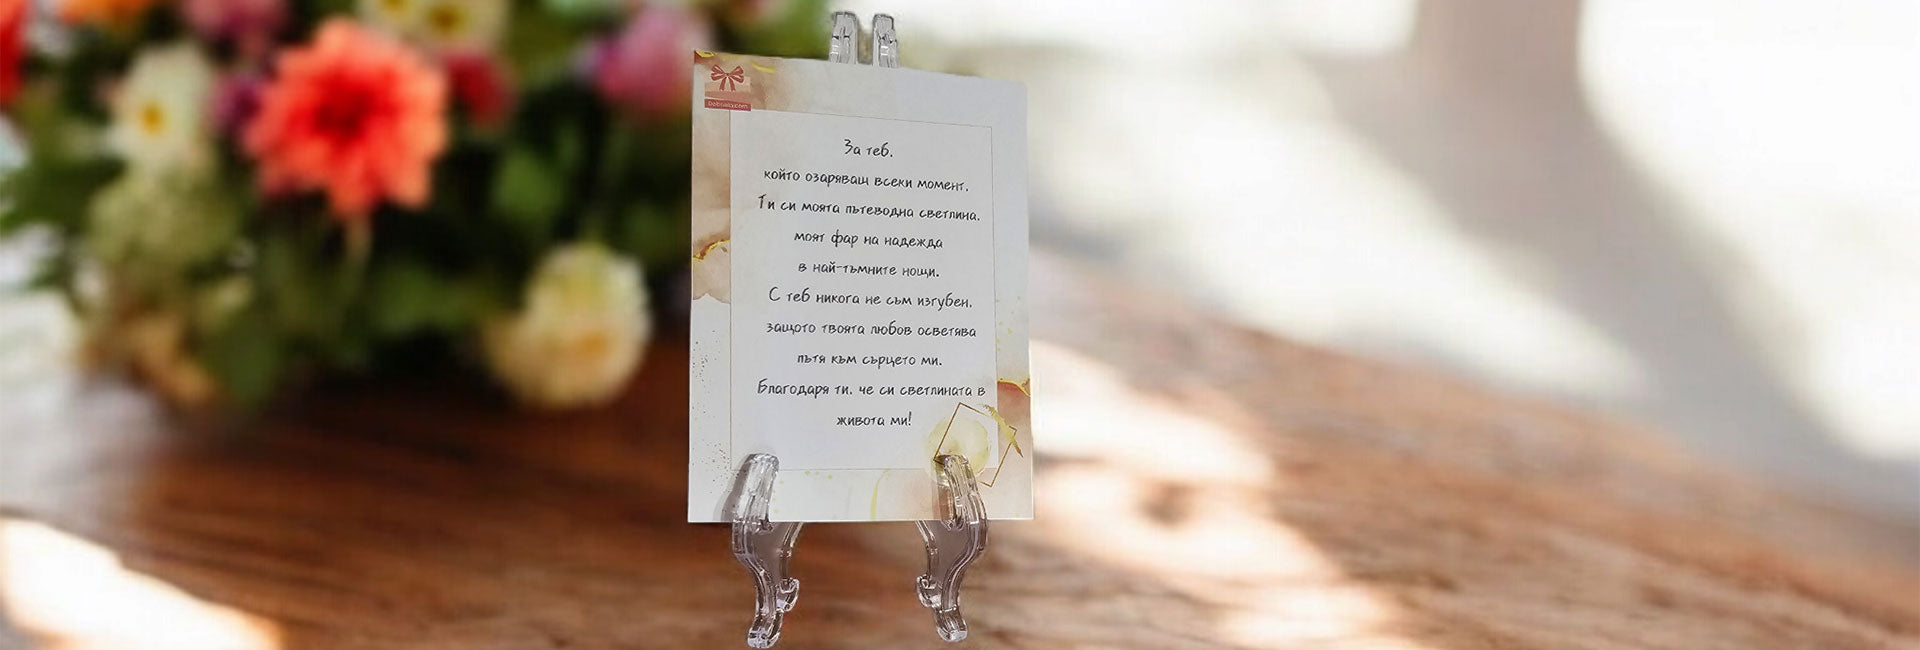 За теб,
който озаряваш всеки момент.
Ти си моята пътеводна светлина,
моят фар на надежда
в най-тъмните нощи.
С теб никога не съм изгубен,
защото твоята любов осветява
пътя към сърцето ми.
Благодаря ти, че си светлината в
живота ми!